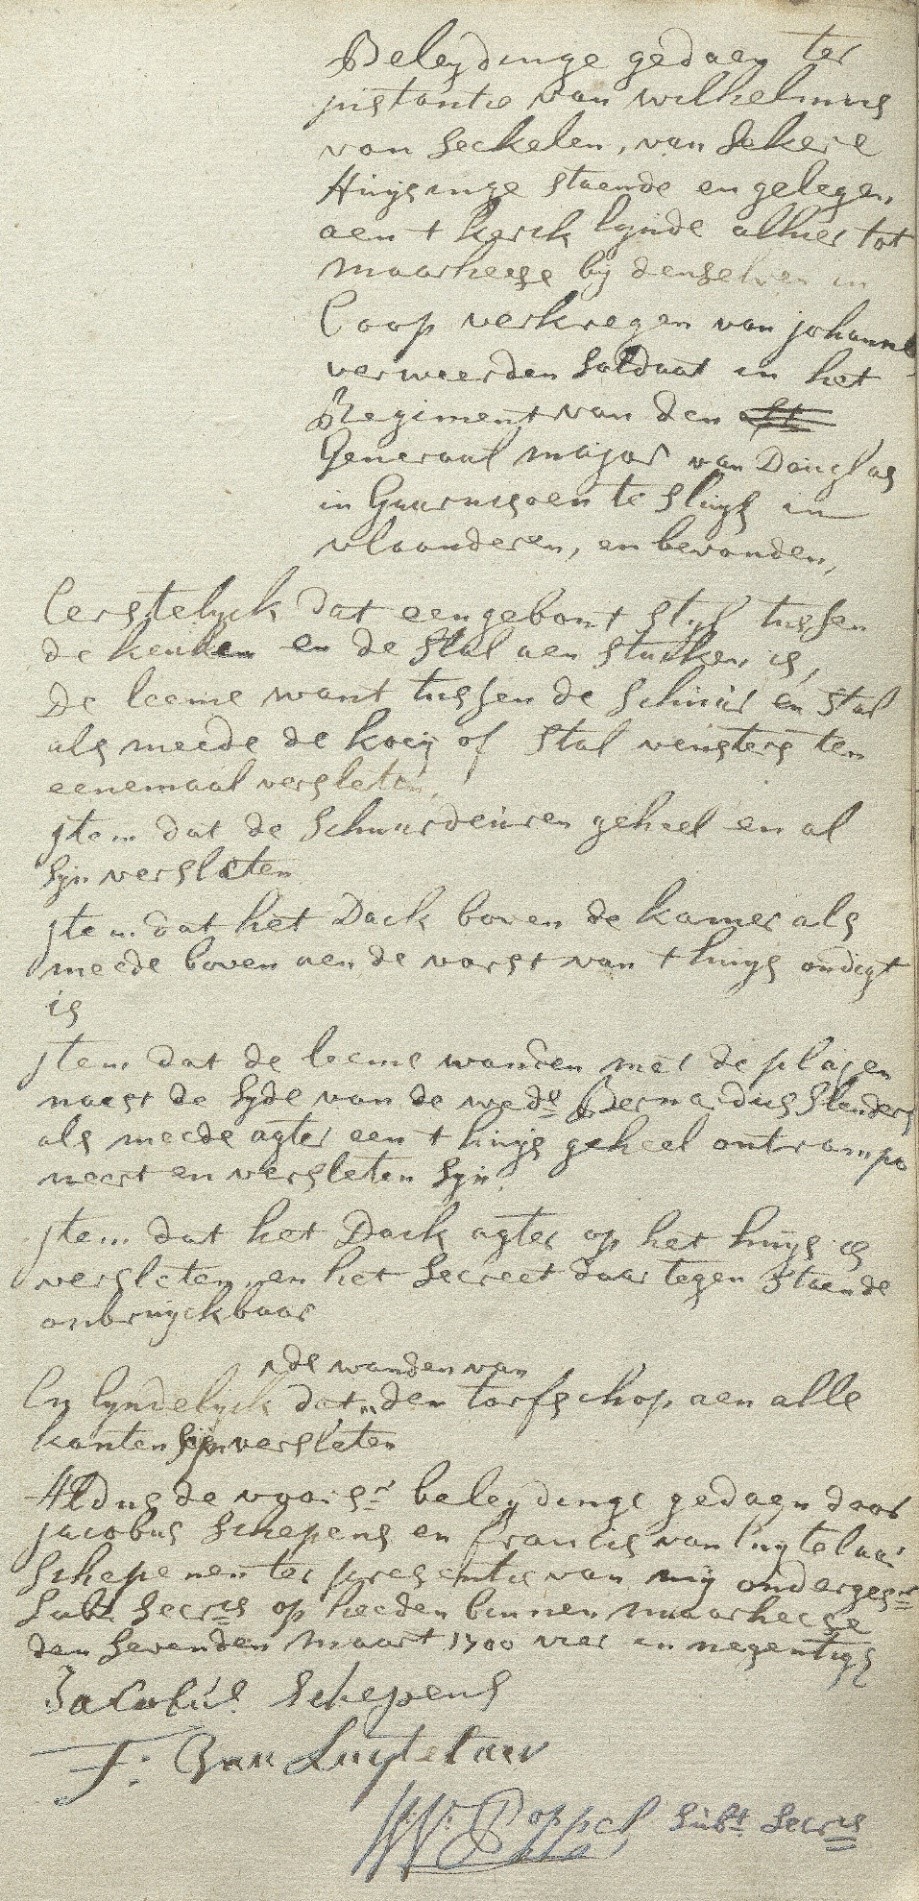 Beleydinge gedaen ter
jnstantie van wilhelmus
van Seckelen, van Sekere
Huysinge staende en gelegen
aen t kerck Eynde alhier tot
maarheese by denselven in
Coop verkregen van johannes
verweerden Soldaat in het
Regiment van den
Generaal major van Douglas
in Guarnisoen te Sluys in
vlaanderen, en bevonden,
Eerstelyck dat een gebont styl tussen
de keuken en de Stal aen stucken is,
De leeme want tussen de Schuur en Stal
als meede de koey of Stal veinsters ten
eenemaal versleten.
jtem dat de Schuurdeuren geheel en al
Syn versleten
jtem dat het Dack boven de kamer als
meede boven aen de vorst van t huys ondigt
is
jtem dat de leeme wanden met de plaien
naest de Syde van de wede Bernardus Slenders
als meede agter een t huys geheel ontrampo
neert en versleten Syn.
jtem dat het Dack agter op het huys is
versleten en het Secreet daar tegen Staende
onbruyckbaar
de wanden van
En Eyndelyck dat den torfschop aen alle
kanten Syn versleten
Aldus de voors: beleydinge gedaen door
jacobus Schepens en francis van Luytelaar
Schepenen ter presentie van my ondergesr
Subt Secrs op heeden binnen maarheese
den Sevenden maart 1700 vier en negentigh
Jacobus Schepens
F: Van Luytelaer
W: Poppel Subt Secrs